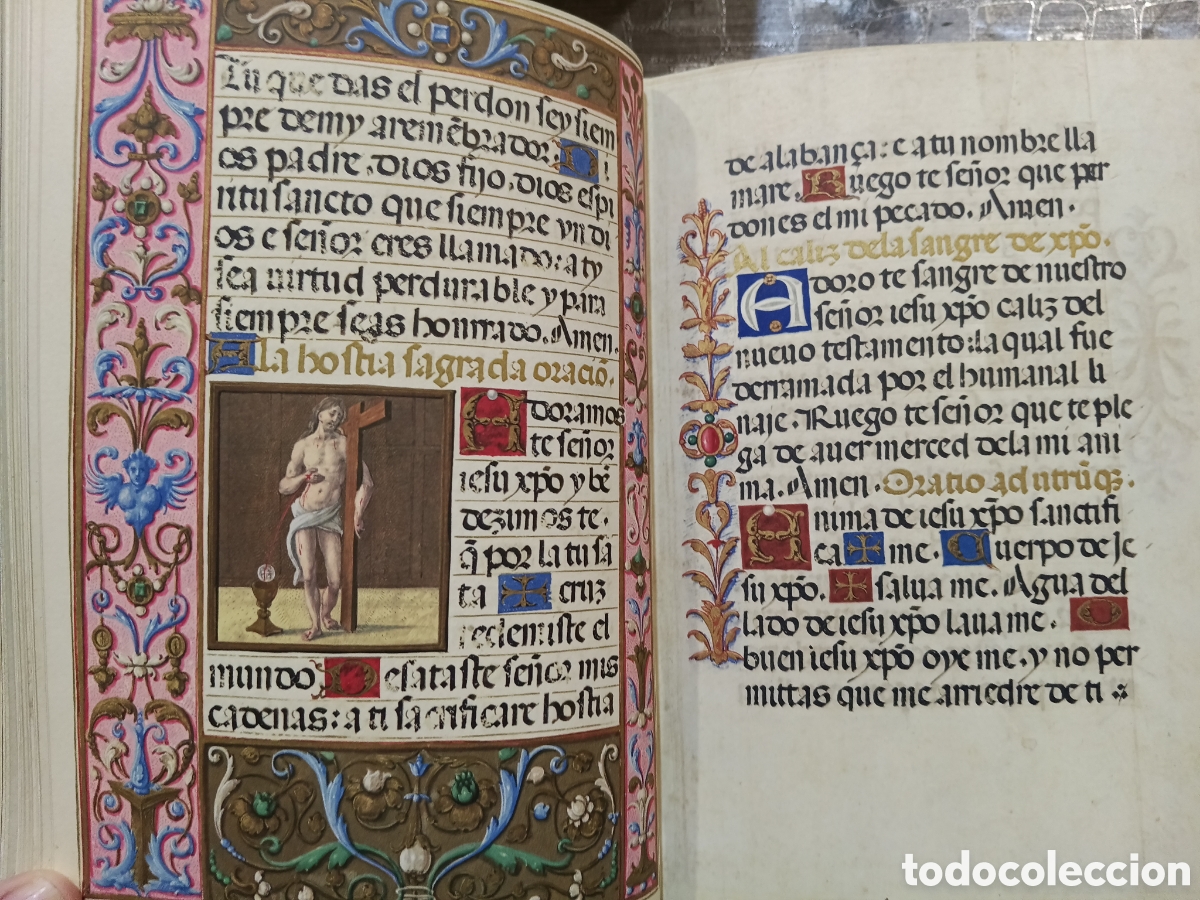 Tu que das el perdon sey siem
pre de my aremẽbrador. Di
os padre, dios fijo, dios espi
ritu sancto que siempre vn di
os e señor eres llamado: a ty
sea virtud perdurable y para
siempre seas honrrado. Amen.
A la hostia sagrada oraciõ.
Adoramos
te señor
iesu xp̃o y bẽ
dezimos te.
q̃ por la tu sã
ta ✠ cruz
redemiste el
mundo. Desataste señor mis
cadenas: a ti sacrificare hostia
de alabança: e a tu nombre lla
mare. Ruego te señor que per
dones el mi pecado. Amen.
Al caliz de la sangre de xp̃o.
Adoro te sangre de nuestro
señor iesu xp̃o caliz del
nueuo testamento: la qual fue
derramada por el humanal li
naje. Ruego te señor que te ple
ga de auer merced de la mi ani
ma. Amen. Oratio ad utrũq̃.
Anima de iesu xp̃o sanctifi
ca ✠ me. Cuerpo de ie
su xp̃o. ✠ salua me. Agua del
lado de iesu xp̃o laua me. O
buen iesu xp̃o oye me. y no per
mittas que me arriedre de ti
todocoleccion